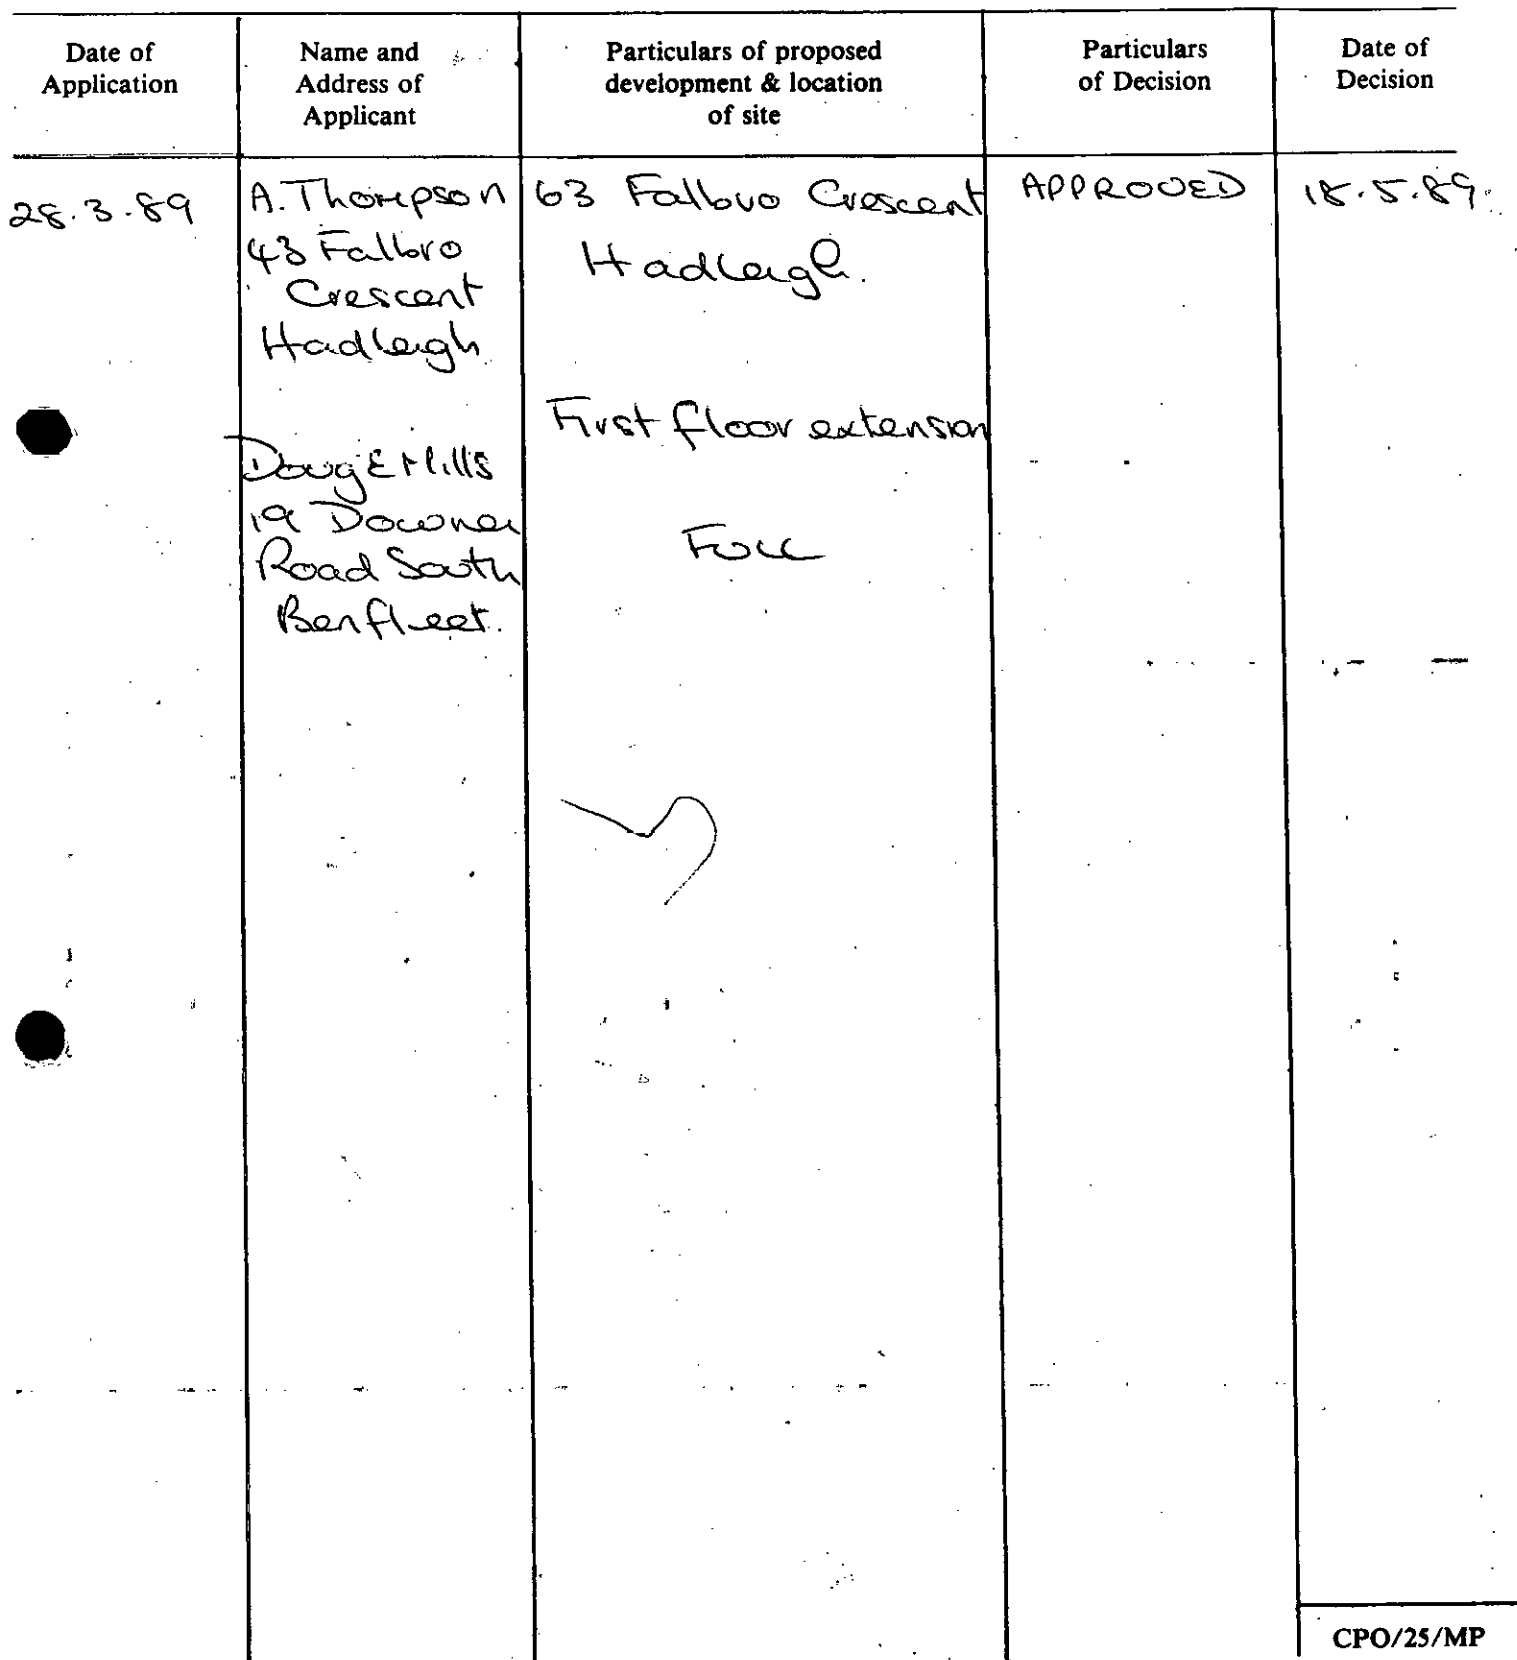 Date of
Application
Name and
Address of
Applicant
Particulars of proposed
development & location
of site
Particulars
of Decision
Date of
Decision
28.3.89
A. Thompson
43 Falbro
Crescent
Hadleigh
Doug E Mills
19 Downer
Road South
Benfleet.
63 Falbro Crescent
Hadleigh.
First floor extension
Full
APPROVED
18.5.89.
CPO/25/MP